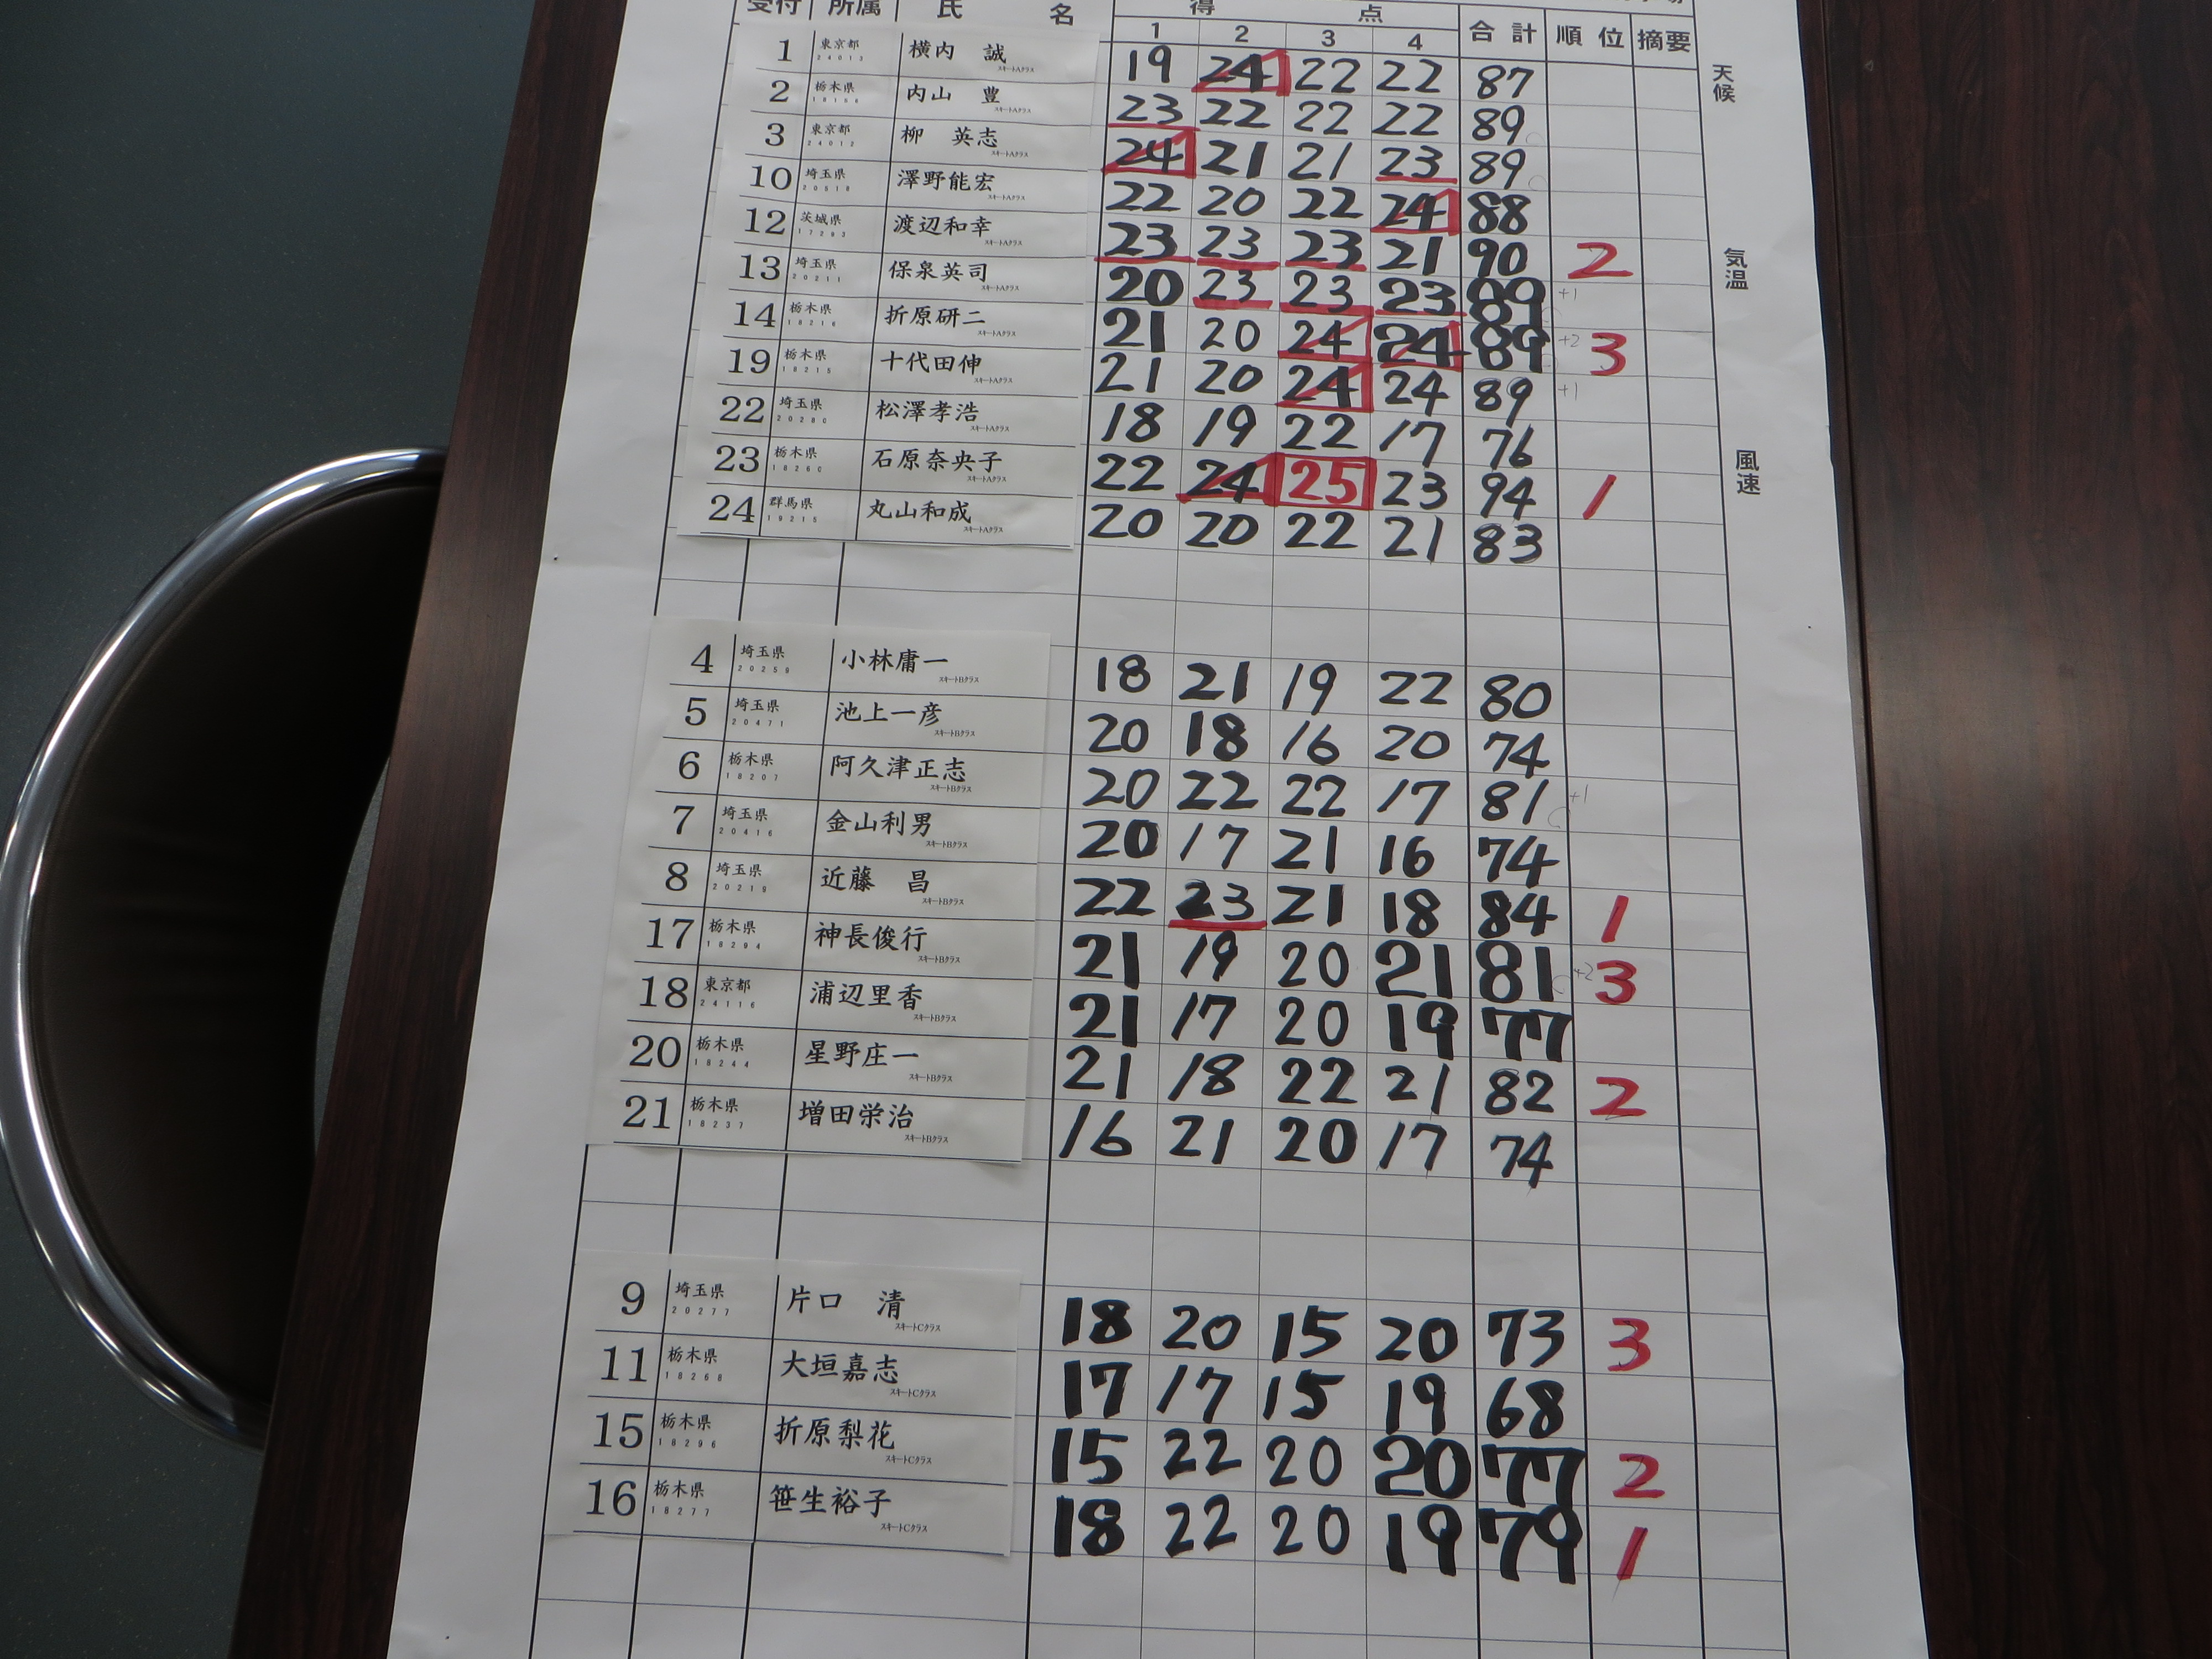 受付 所属 氏 名 得 点 合計 順位 摘要
1 2 3 4
1 東京都 24013 横内 誠 スキートAクラス 19 24 22 22 87
2 栃木県 18158 内山 豊 スキートAクラス 23 22 22 22 89
3 東京都 24012 柳 英志 スキートAクラス 24 21 21 23 89
10 埼玉県 20518 澤野能宏 スキートAクラス 22 20 22 24 88
12 茨城県 17293 渡辺和幸 スキートAクラス 23 23 23 21 90 2
13 埼玉県 20211 保泉英司 スキートAクラス 20 23 23 23 89 +1
14 栃木県 18216 折原研二 スキートAクラス 21 20 24 24 89 +2 3
19 栃木県 18215 十代田伸 スキートAクラス 21 20 24 24 89 +1
22 埼玉県 20280 松澤孝浩 スキートAクラス 18 19 22 17 76
23 栃木県 18260 石原奈央子 スキートAクラス 22 24 25 23 94 1
24 群馬県 19215 丸山和成 スキートAクラス 20 20 22 21 83
4 埼玉県 20259 小林庸一 スキートBクラス 18 21 19 22 80
5 埼玉県 20471 池上一彦 スキートBクラス 20 18 16 20 74
6 栃木県 18207 阿久津正志 スキートBクラス 20 22 22 17 81 +1
7 埼玉県 20416 金山利男 スキートBクラス 20 17 21 16 74
8 埼玉県 20219 近藤 昌 スキートBクラス 22 23 21 18 84 1
17 栃木県 18294 神長俊行 スキートBクラス 21 19 20 21 81 +2 3
18 東京都 24116 浦辺里香 スキートBクラス 21 17 20 19 77
20 栃木県 18244 星野庄一 スキートBクラス 21 18 22 21 82 2
21 栃木県 18237 増田栄治 スキートBクラス 16 21 20 17 74
9 埼玉県 20277 片口 清 スキートCクラス 18 20 15 20 73 3
11 栃木県 18268 大垣嘉志 スキートCクラス 17 17 15 19 68
15 栃木県 18296 折原梨花 スキートCクラス 15 22 20 20 77 2
16 栃木県 18277 笹生裕子 スキートCクラス 18 22 20 19 79 1
天候
気温
風速